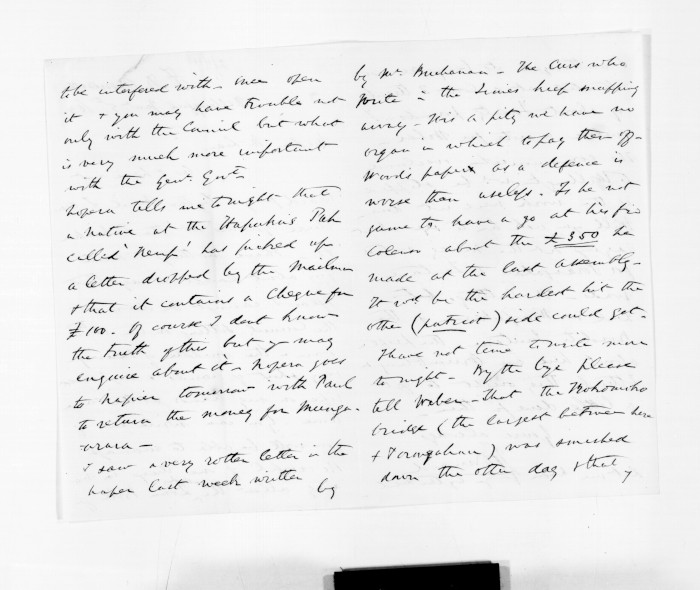 to be interfered with - once open
it & you may have trouble not
only with the Council but what
is very much more important
with the Genl. Govt.
Hopera tells me tonight that
a Native at the Pah
called 'Hemp' has picked up
a letter dropped by the Mailman
& that it contains a Cheque for
£100. Of course I dont know
the truth of this but y may
enquire about it - Hopera goes
to Napier tomorrow with Paul
to return the money for Munga-
arara -
I saw a very rotten letter in the
paper last week written
by
by Mr. Buchanan - The Curs who
write in the Times keep snapping
away - It is a pity we have no
organ in which to pay them off -
Woods paper as a defence is
worse than useless. Is he not
game to have a go at his fr
Colenso about the £350 he
made at the last assembly -
It wd. be the hardest hit the
other (patriot) side could get -
I have not time to write more
tonight - By the bye please
tell Weber - that the
bridge (the largest between here
& ) was smashed
down the other day & that
y